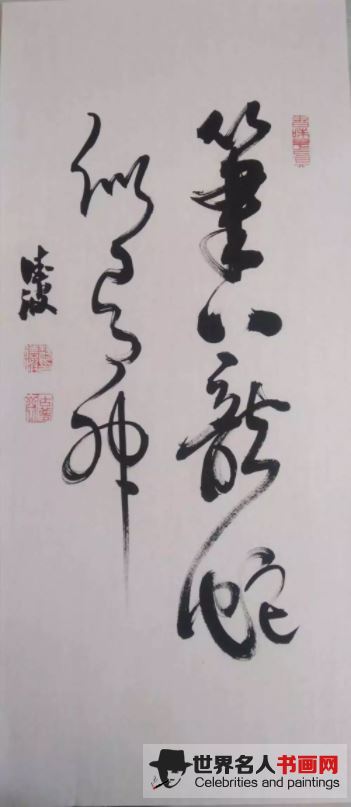 筆下龍蛇
似有神
世界名人书画网
Celebrities and paintings